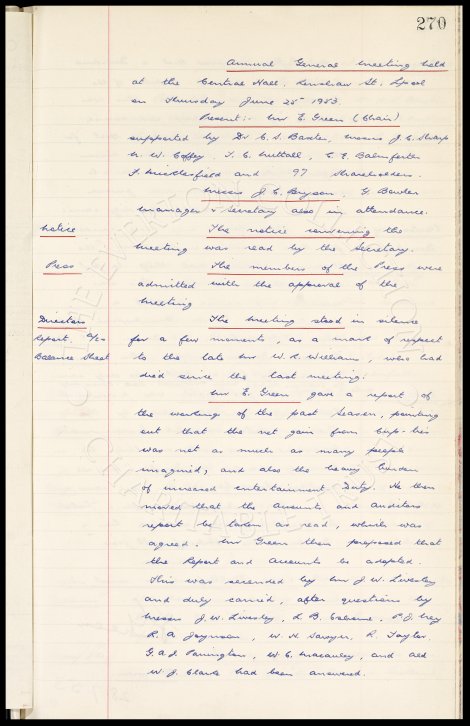 270
Annual General Meeting held
at the Central Hall, Renshaw St, Lpool
on Thursday June 25th 1953.
Present:- Mr E. Green (Chair)
supported by Dr C. S. Baxter, Messrs J. C. Sharp
N. W. Coffey, F. C. Nuttall, C. E. Balmforth
F. Micklesfield and 97 Shareholders.
Messrs J. C. Bryson, G. Bowler
Manager & Secretary also in attendance.
Notice
The notice convening the
meeting was read by the Secretary.
Press
The members of the Press were
admitted with the approval of the
meeting
Directors
The meeting stood in silence
Report. A/cs
for a few moments, as a mark of respect
Balance Sheet
to the late Mr W. R. Williams, who had
died since the last meeting.
Mr E. Green gave a report of
the workings of the past season, pointing
out that the net gain from Cup-ties
was not as much as many people
imagined, and also the heavy burden
of increased entertainment Duty. He then
moved that the accounts and auditors
report be taken as read, which was
agreed. Mr Green then proposed that
the Report and Accounts be adopted.
This was seconded by Mr J. W. Livesley
and duly carried, after questions by
Messrs J. W. Livesley, L. B.
R. A. Joynson, W. H. Sawyer, R. Taylor,
G. A. J. W. C. Macauley, and
W. J. Clarke had been answered.
THE EVERTON COLLECTION
CHARITABLE TRUST